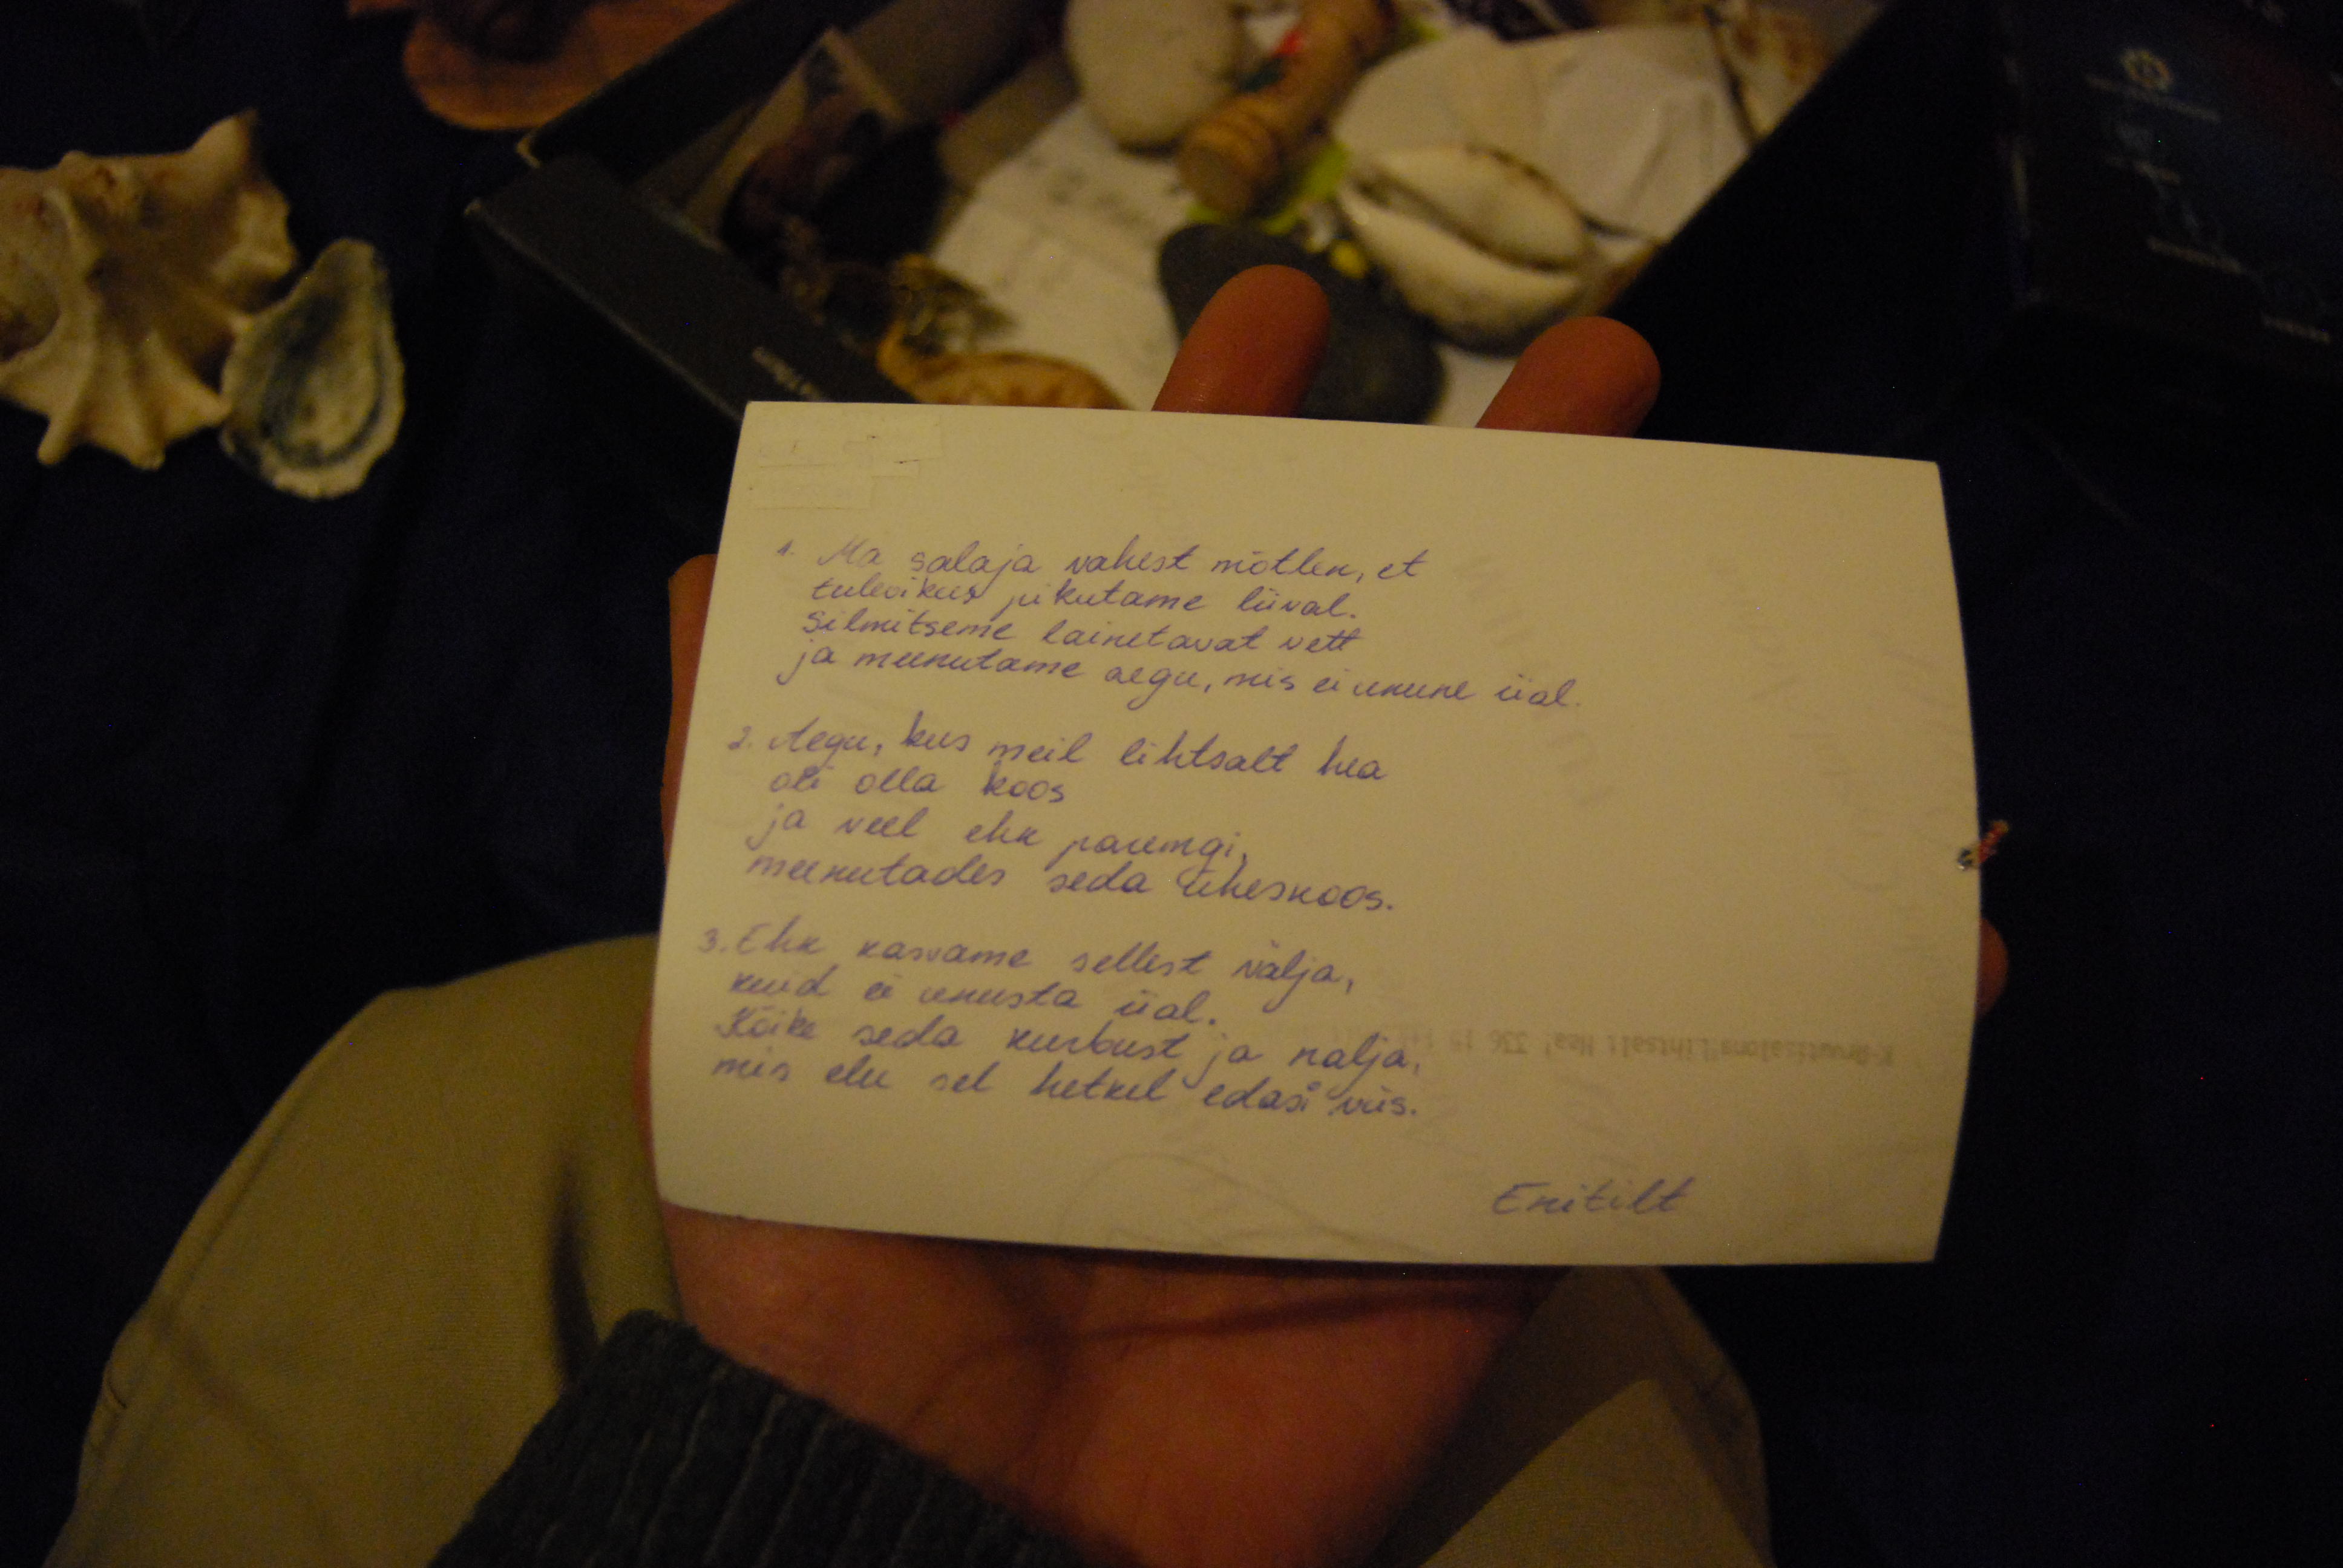 1. Ma salaja vahest mõtlen, et
tulevikus pikutame liival.
Silmitseme lainetavat vett
ja meenutame aegu, mis ei unune iial.
2. Aegu, kus meil lihtsalt hea
oli olla koos
ja veel ehk paremgi,
meenutades seda üheskoos.
3. Ehk kasvame sellest välja,
kuid ei unusta iial.
Kõike seda kurbust ja nalja,
mis elu sel hetkel edasi viis.
Enitilt
K-Arvutisalong "Lihtsalt Hea"